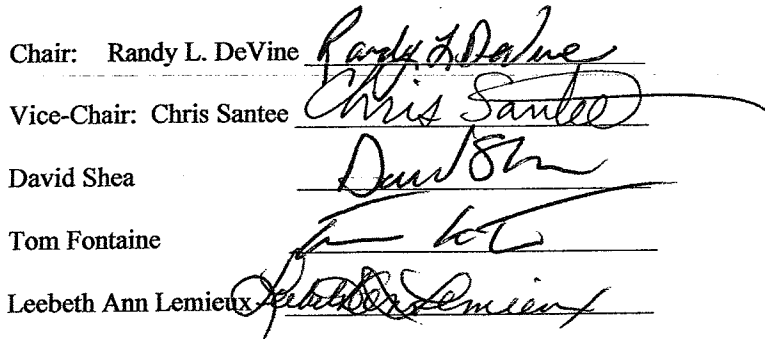 Chair: Randy L. DeVine Randy L. DeVine
Vice-Chair: Chris Santee Chris Santee
David Shea David Shea
Tom Fontaine
Leebeth Ann Lemieux Leebeth Ann Lemieux